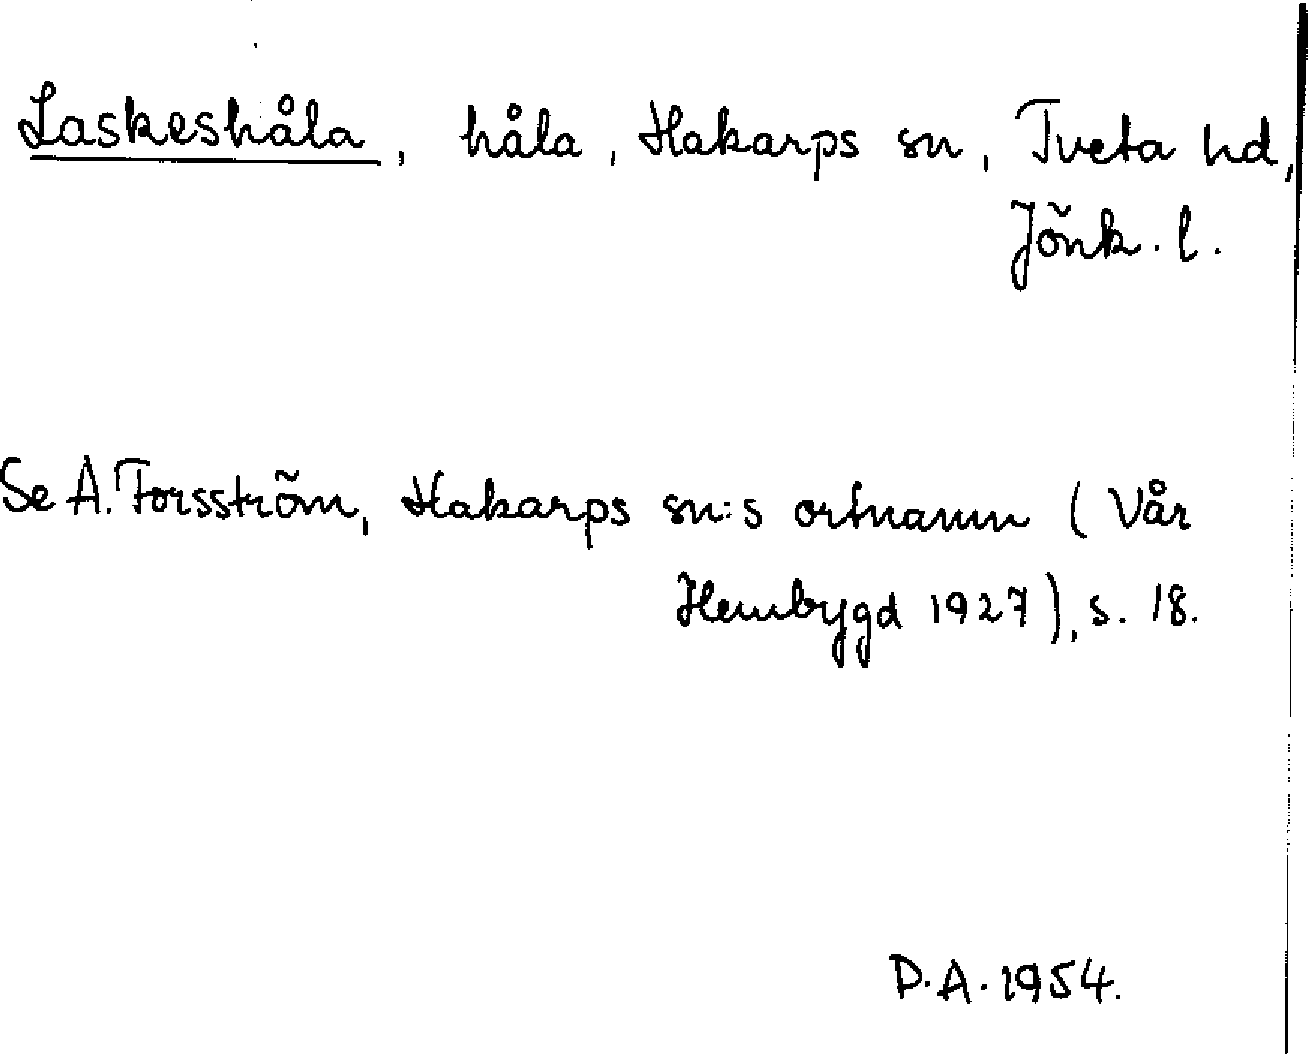 Laskeshåla, håla, Hakarps sn, Tveta hd,
Jönk. l.
Se A. Forsström, Hakarps sn:s ortnamn (Vår
Hembygd 1927), s. 18.
D.A. 1954.